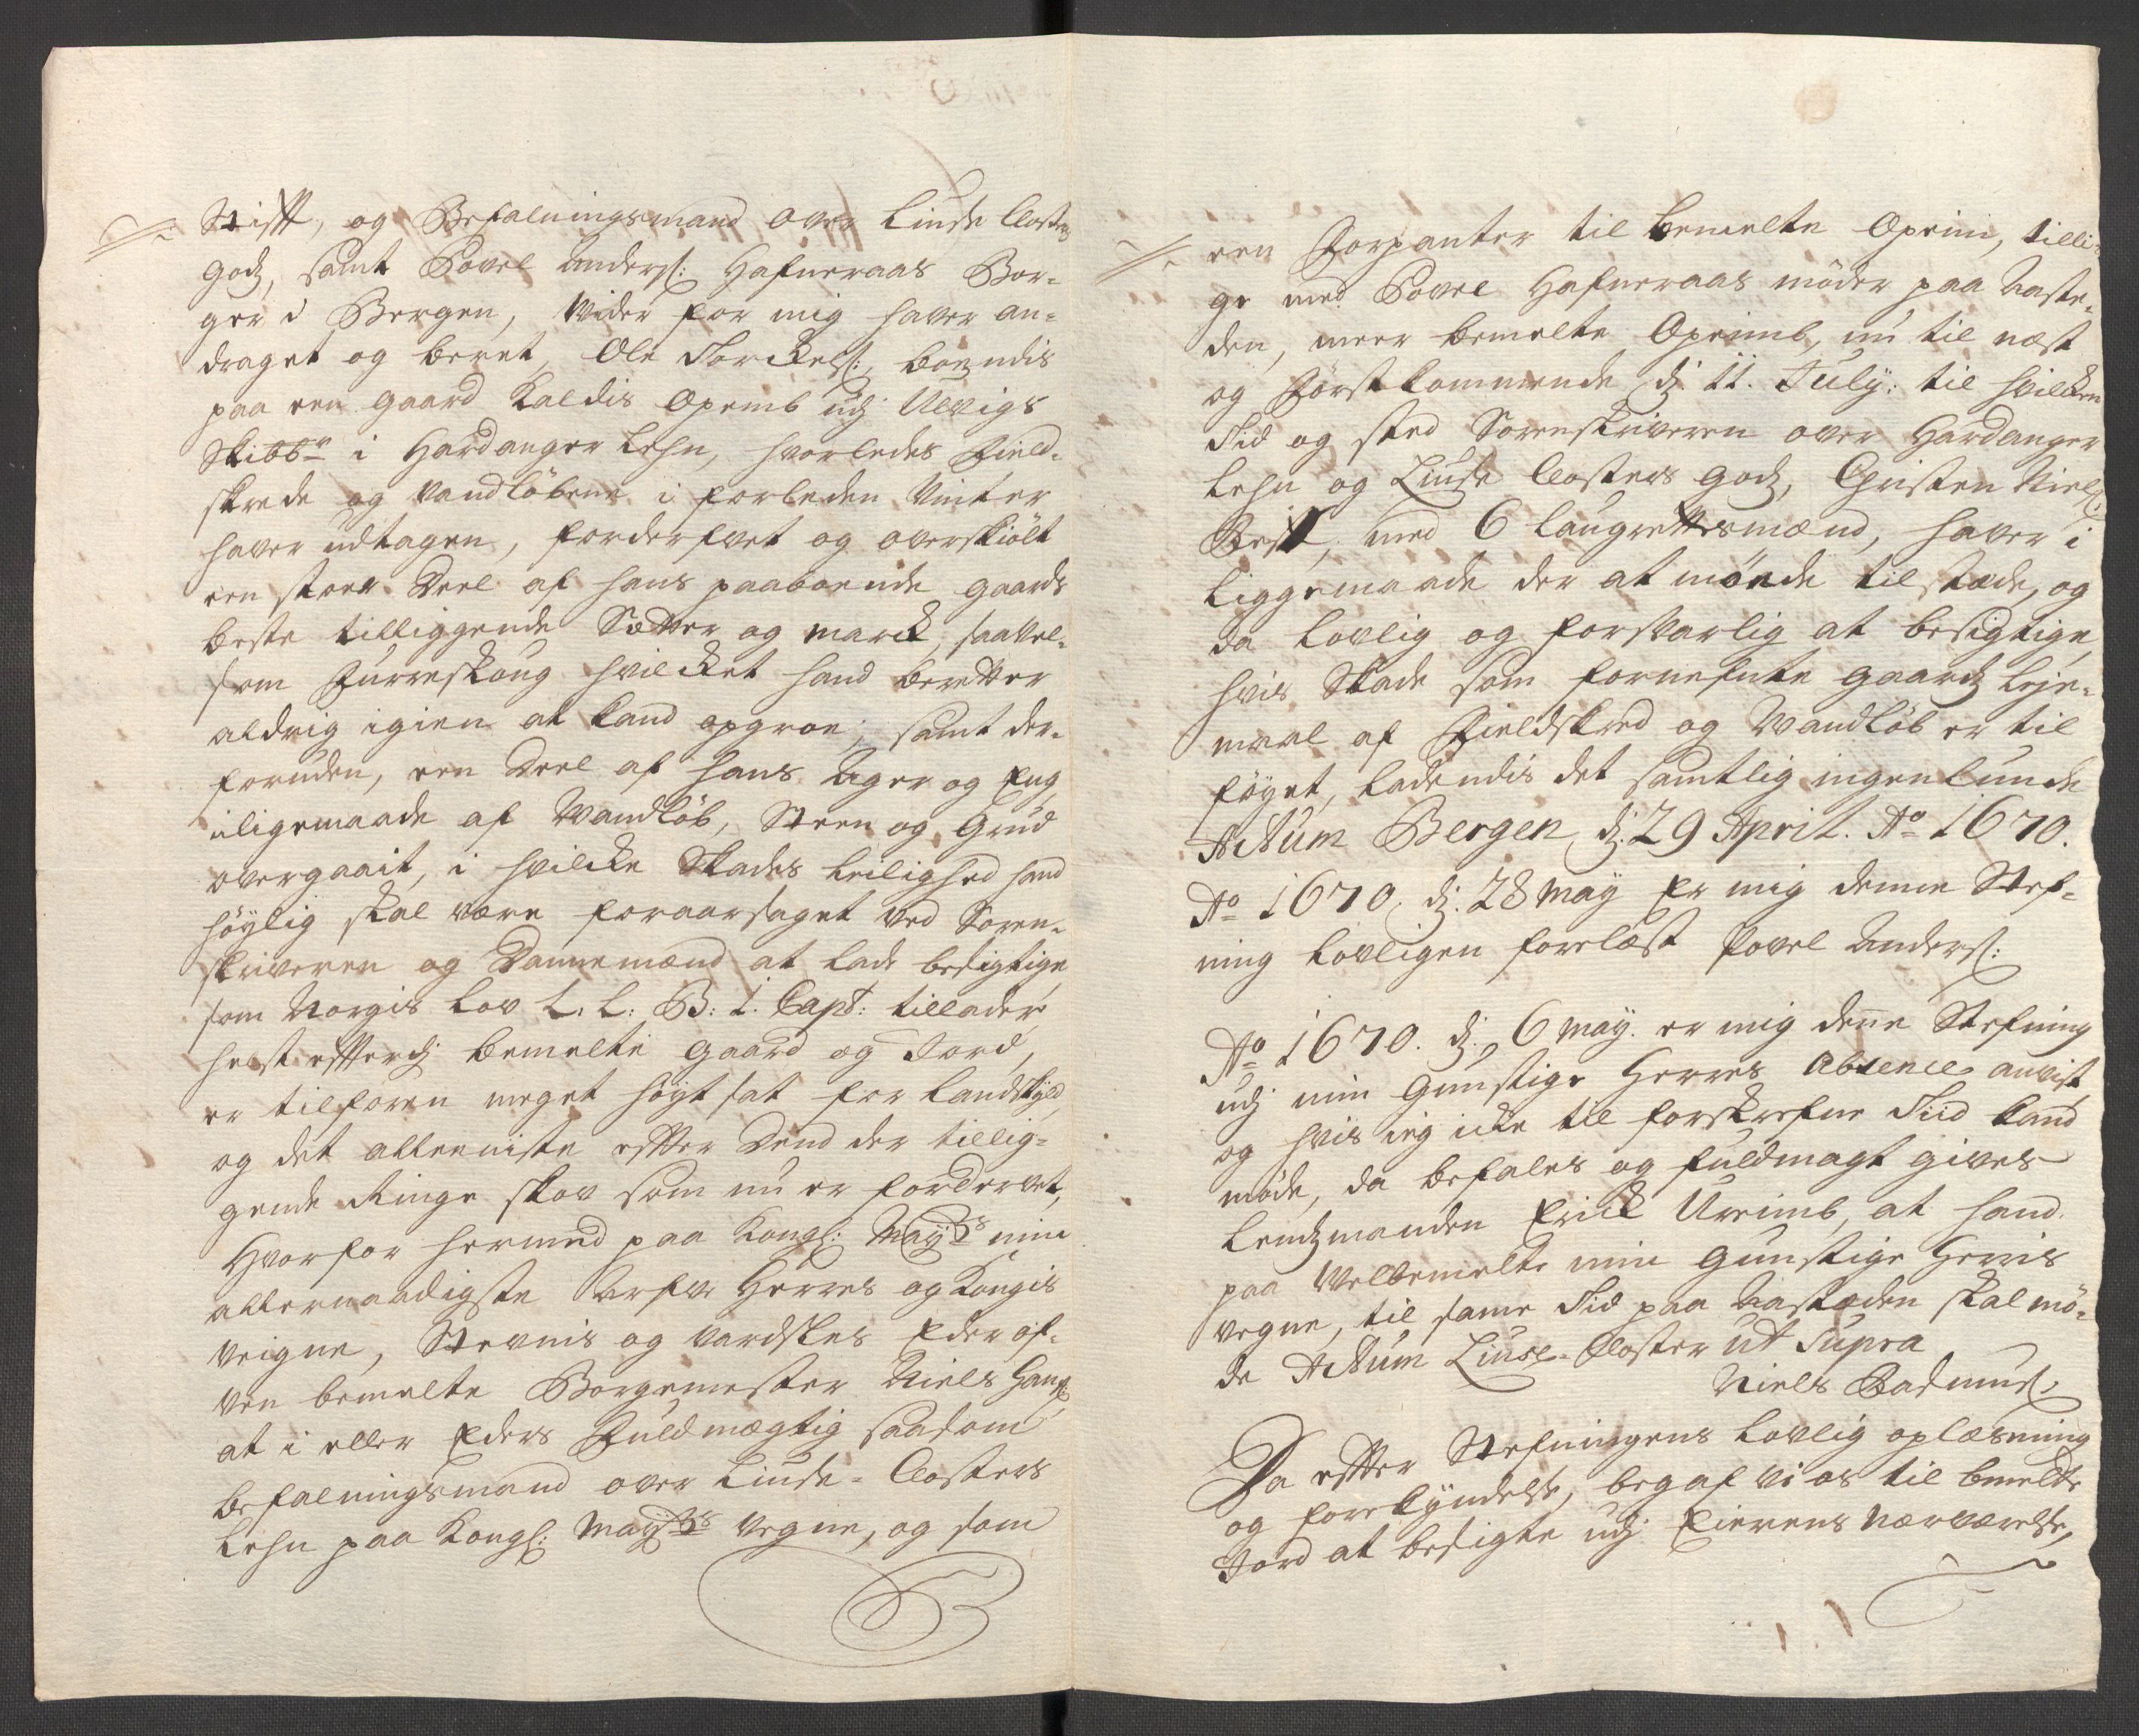 Stift, og Befalningsmand over Liuse Closters
godz, samt Povel Anders: Hafneraas Bor-
ger i Bergen, Wider for mig haver an-
draget og beret, Ole Torckels:, boendis
paa een gaard kaldis Opemb udj Ulvigs
Skibbr: i Hardanger Lehn, hvorledes Field-
skrede og vandløbene i forleden Vinter
haver udtagen, forderfvet og overskiølt
een stoer Deel af hans paaboende gaards
beste tilliggende Sætter og marck, saavel-
som Furreskoug hvilcket hand beretter
aldrig igien at kand opgroe, samt der-
foruden, een Deel af hans Ager og Eng
iligemaade af Wandløb, Steen og Grud
overgaait, i hvilcke Skades leilighed hand
høylig skal være foraarsaget ved Soren-
skriveren og Dannemænd at lade besigtige
som Norgis Lov L. L: B: 1. Capt: tillader
helst efterdj bemelte gaard og Jord,
er tilforen meget høyt sat for Landskyld,
og det alleeniste efter Dend der tillig-
gende Ringe skov som nu er fordervet,
Hvorfor hermed paa Kongl: Maytz min
allernaadigste Arfve Herres og Kongis
veigne, Stevnis og vardskes Eder of-
ven bemelte Borgemester Niels Hans:
at i eller Eders Fuldmægtig saasom
befalningsmand over Liuse-Closters
Lehn paa Kongl: Maytz vegne, og som
een Forpanter til bemelte Opeim, tilli-
ge med Povel Hafneraas møder paa Aaste-
den, meer bemelte Opeimb, nu til næst
og førstkommende d. 11. July: til hvilcken
Tid og sted Sorenskriveren over Hardanger
Lehn og Liuse Closters godz, Christen Niels:
Best, med 6 Laugrettesmænd, haver i
liggemaade der at møede tilstæde, og
da lovlig og forsvarlig at besigtige,
hvis Skade som fornefnte gaardz leje-
maal af Fieldskred og Wandløb er til
føyet, ladendis det samtlig ingenlunde
Actum Bergen d. 29 April. Ao 1670.
Ao 1670. d. 28 May Er mig denne Stef-
ning lovligen forelæst Povel Anders:
Ao 1670. d. 6 May. er mig denne Stefning
udj min Gunstige Herres Absence anvist,
og hvis ieg icke til forskrefne Tiid kand
møde, da befales og fuldmagt gives
Lendzmanden Erick Ureimb, at hand
paa Welbemelte min Gunstige Herris
vegne, til samme Tid paa Aastæden skal mø-
de Actum Liuse-Closter ut Supra
Niels Rasmus:
Da efter Stefningens lovlig oplæsning
og forekyndelse, begaf vi os til bemelte
Jord at besigte udj Eierens nærværelse,